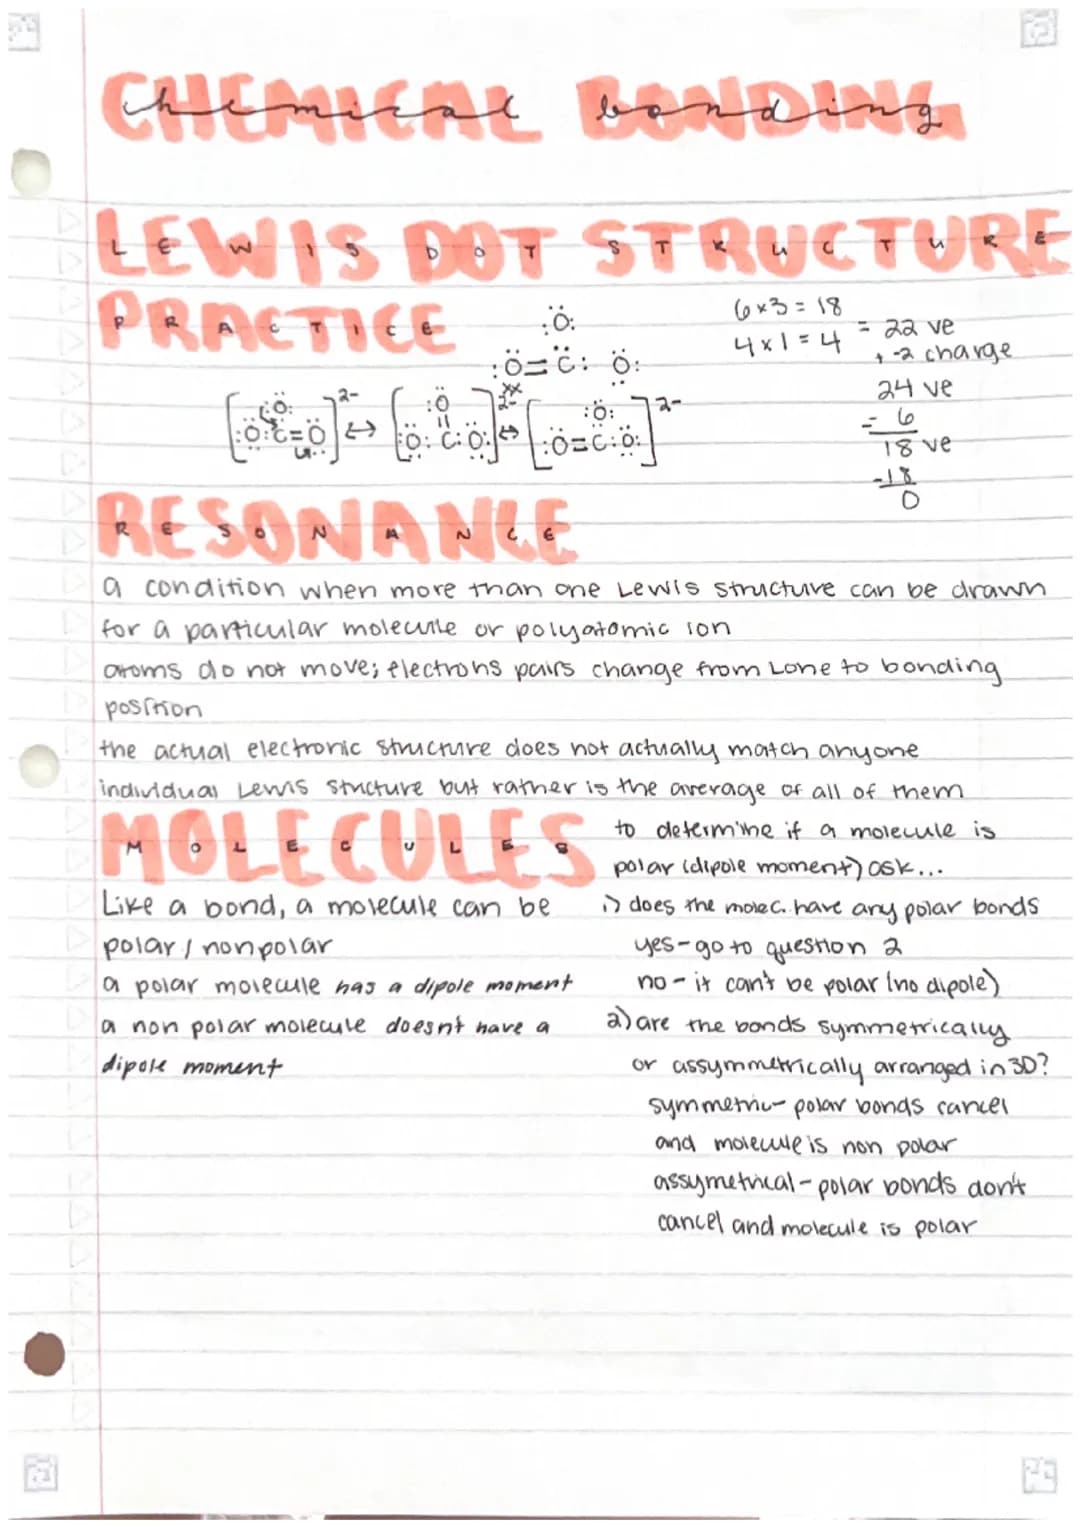 chemical bonding
LEWIS DOT STRUCTURE
PRACTICE
6x3 = 18
4x1 = 4 = 22 ve
+ -2 charge
24 ve
- 6
18 ve
-18
0
:Ö:
:Ö=C: Ö:
[:Ö:C=Ö]2- ↔ [:Ö: C:Ö:]2- ↔ [:Ö=C:Ö:]2-
RESONANCE
a condition when more than one Lewis structure can be drawn
for a particular molecule or polyatomic ion
atoms do not move; electrons pairs change from Lone to bonding
position
the actual electronic structure does not actually match anyone
individual Lewis structure but rather is the average of all of them
MOLECULES
Like a bond, a molecule can be
polar / nonpolar
a polar molecule has a dipole moment
a non polar molecule doesn't have a
dipole moment
to determine if a molecule is
polar (dipole moment) ask...
1) does the molec. have any polar bonds
yes - go to question 2
no - it can't be polar (no dipole)
2) are the bonds symmetrically
or assymmetrically arranged in 3D?
symmetric - polar bonds cancel
and molecule is non polar
assymetrical - polar bonds don't
cancel and molecule is polar